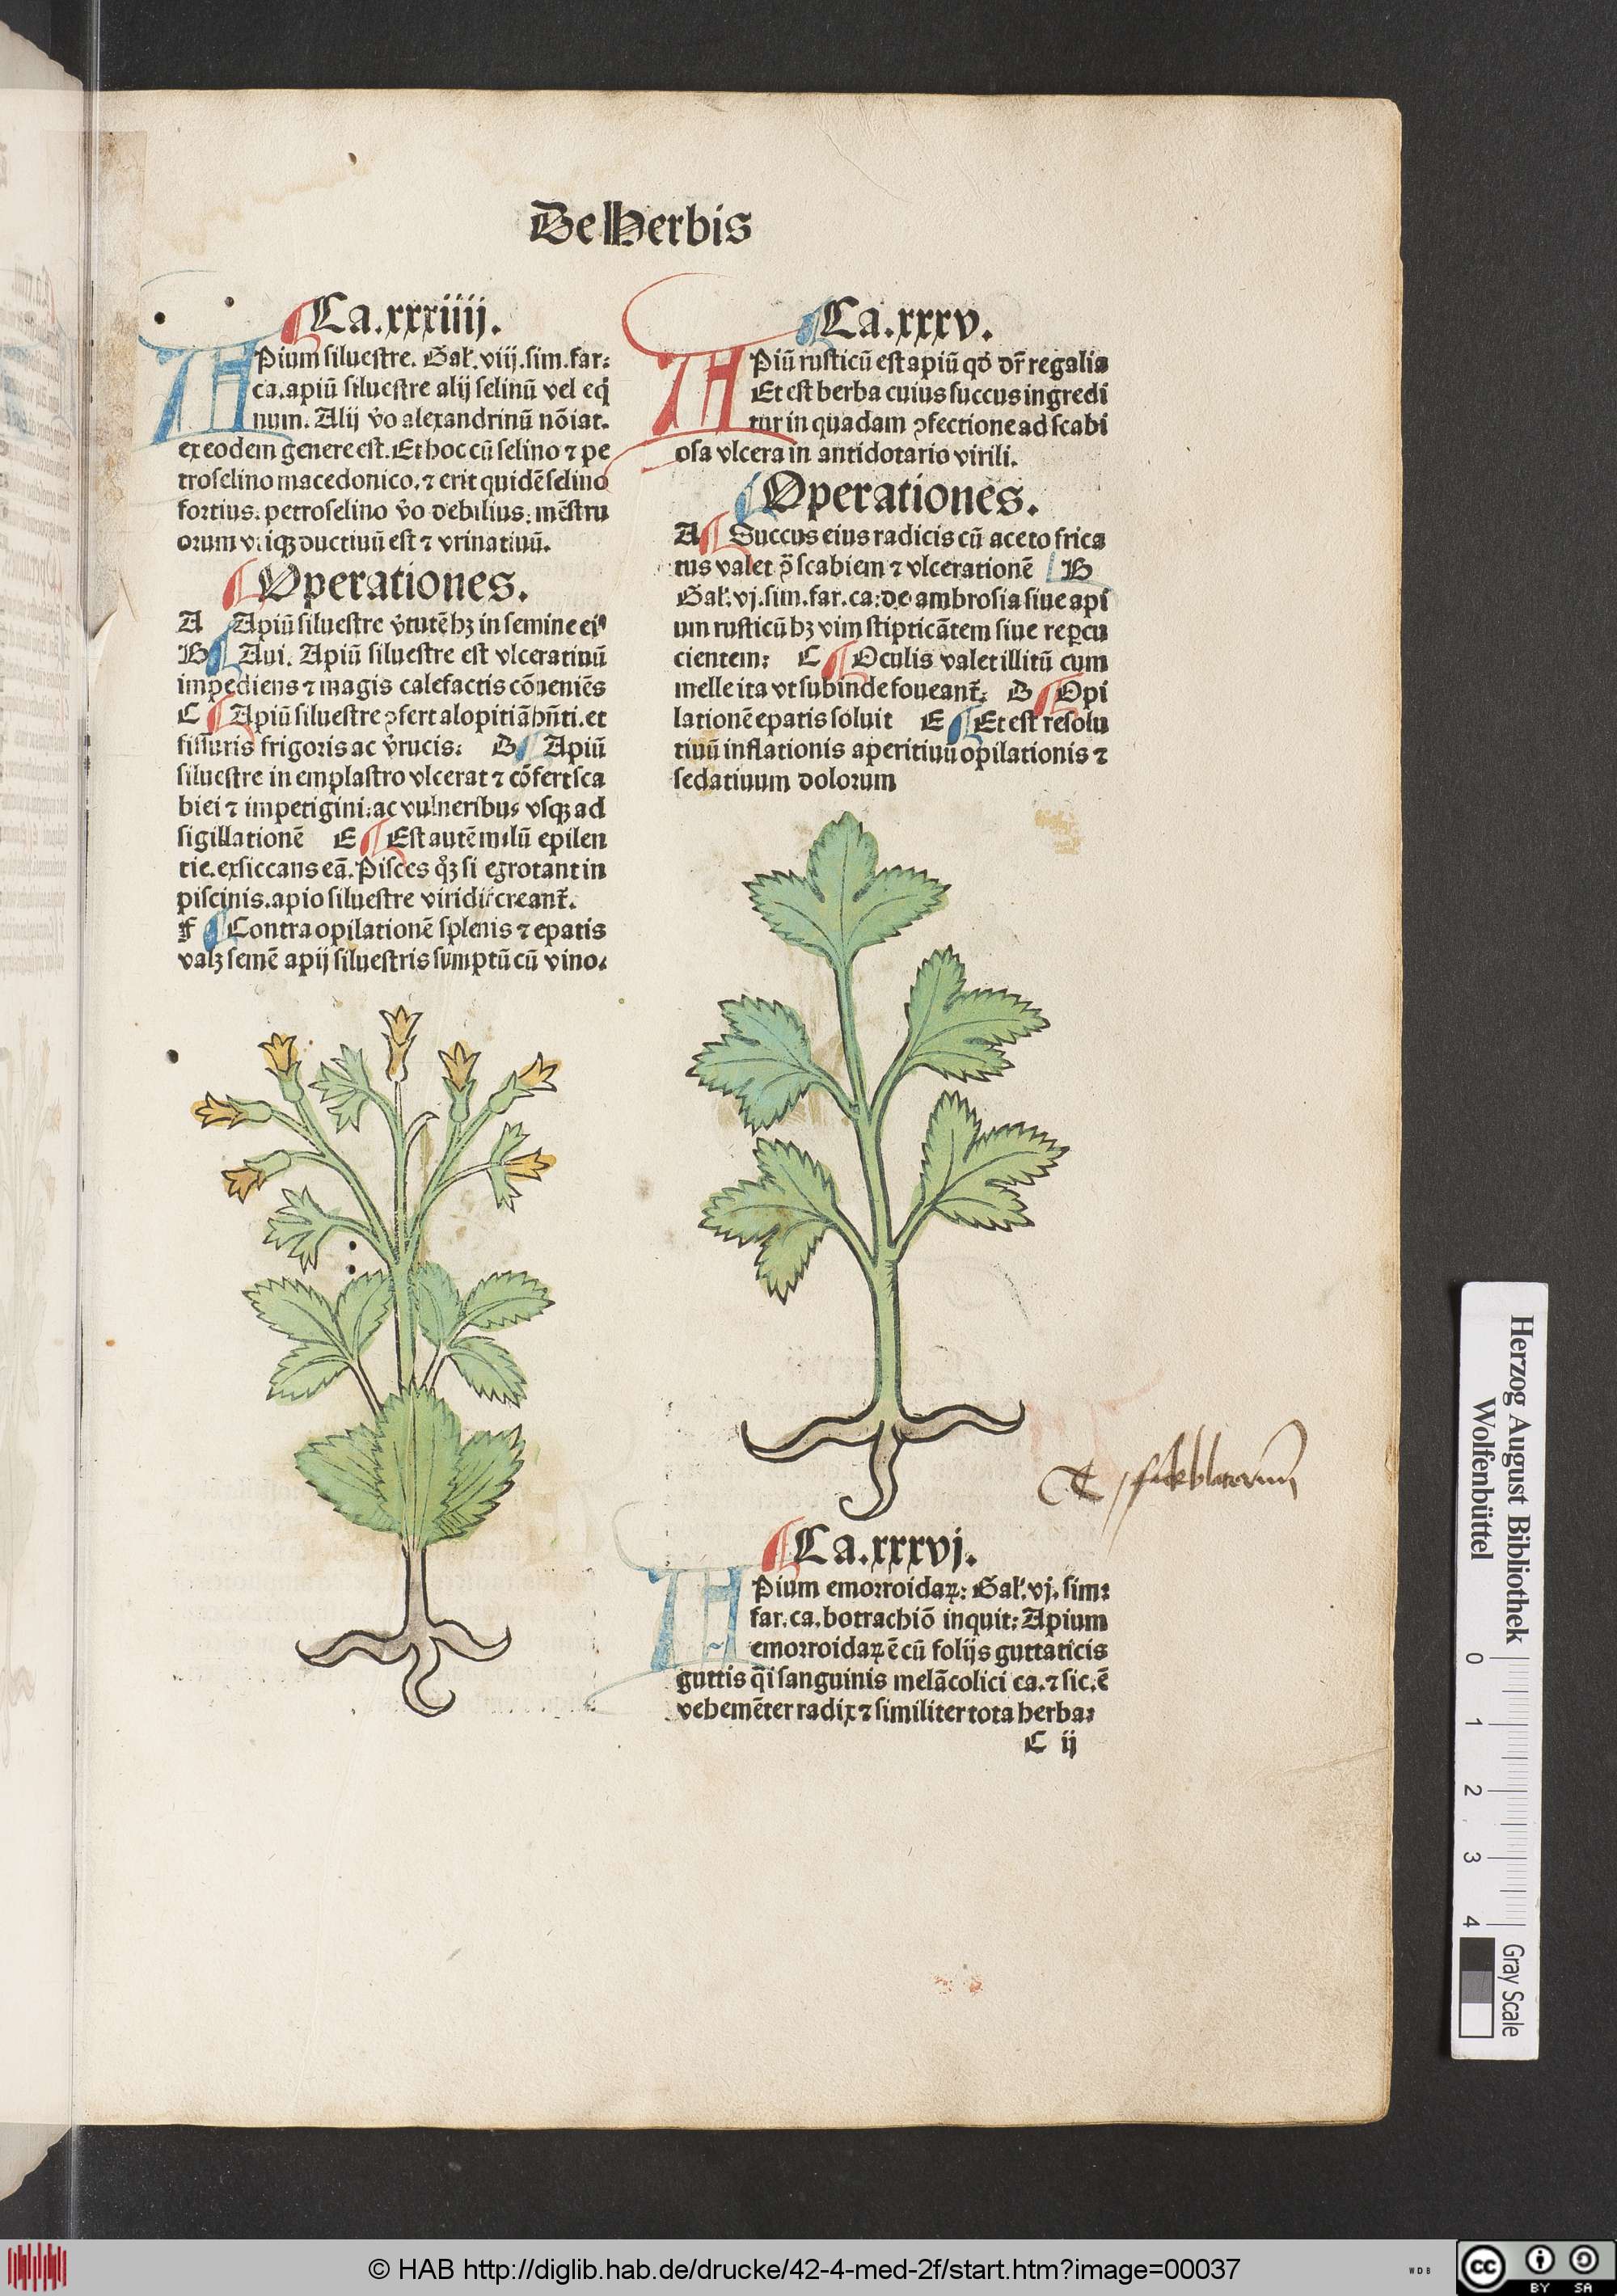 De Herbis
Ca.xxxiiij.
APium siluestre. Gal̃. viij. sim. far:
ca. apiū siluestre alij selinū vel eq̄
num. Alij v̊o alexandrinū nōiat.
ex eodem genere est. Et hoc cū selino ⁊ pe
troselino macedonico. ⁊ erit quidē selino
fortius: petroselino v̊o debilius: mēstru
orum vtiqꝫ ductiuū est ⁊ vrinatiuū.
Operationes.
A Apiū siluestre v̊tutē hꝫ in semine eiꝰ
B Aui. Apiū siluestre est vlceratiuū
impediens ⁊ magis calefactis cōueniēs
C Apiū siluestre ꝯfert alopitiā hñti. et
fissuris frigoris ac v̊rucis: D Apiū
siluestre in emplastro vlcerat ⁊ cōfert sca
biei ⁊ impetigini: ac vulneribus vsqꝫ ad
sigillationē E Est autē malū epilen
tie. exsiccans eā. Pisces qͦꝫ si egrotant in
piscinis. apio siluestre viridi recreant᷑.
F Contra opilationē splenis ⁊ epatis
valꝫ semē apij siluestris sumptū cū vino.
Ca.xxxv.
APiū rusticū est apiū qď dr̄ regalis
Et est herba cuius succus ingredi
tur in quadam ꝯfectione ad scabi
osa vlcera in antidotario virili.
Operationes.
A Succus eius radicis cū aceto frica
tus valet ꝓ scabiem ⁊ vlcerationē B
Gal̃. vj. sim. far. ca: de ambrosia siue api
um rusticū hꝫ vim stipticātem siue reꝑcu
cientem: C Oculis valet illitū cum
melle ita vt subinde foueant᷑: D Opi
lationē epatis soluit E Et est resolu
tiuū inflationis aperitiuū opilationis ⁊
sedatiuum dolorum
Ca.xxxvj.
APium emorroidaꝝ: Gal̃. vj. sim:
far. ca. botrachiō inquit: Apium
emorroidaꝝ ē cū folijs guttaticis
guttis q̄si sanguinis melācolici ca. ⁊ sic. ē
vehemēter radix ⁊ similiter tota herba:
C ij
Herzog August Bibliothek
Wolfenbüttel
0 1 2 3 4
Gray Scale
© HAB http://diglib.hab.de/drucke/42-4-med-2f/start.htm?image=00037
WDB
cc BY SA